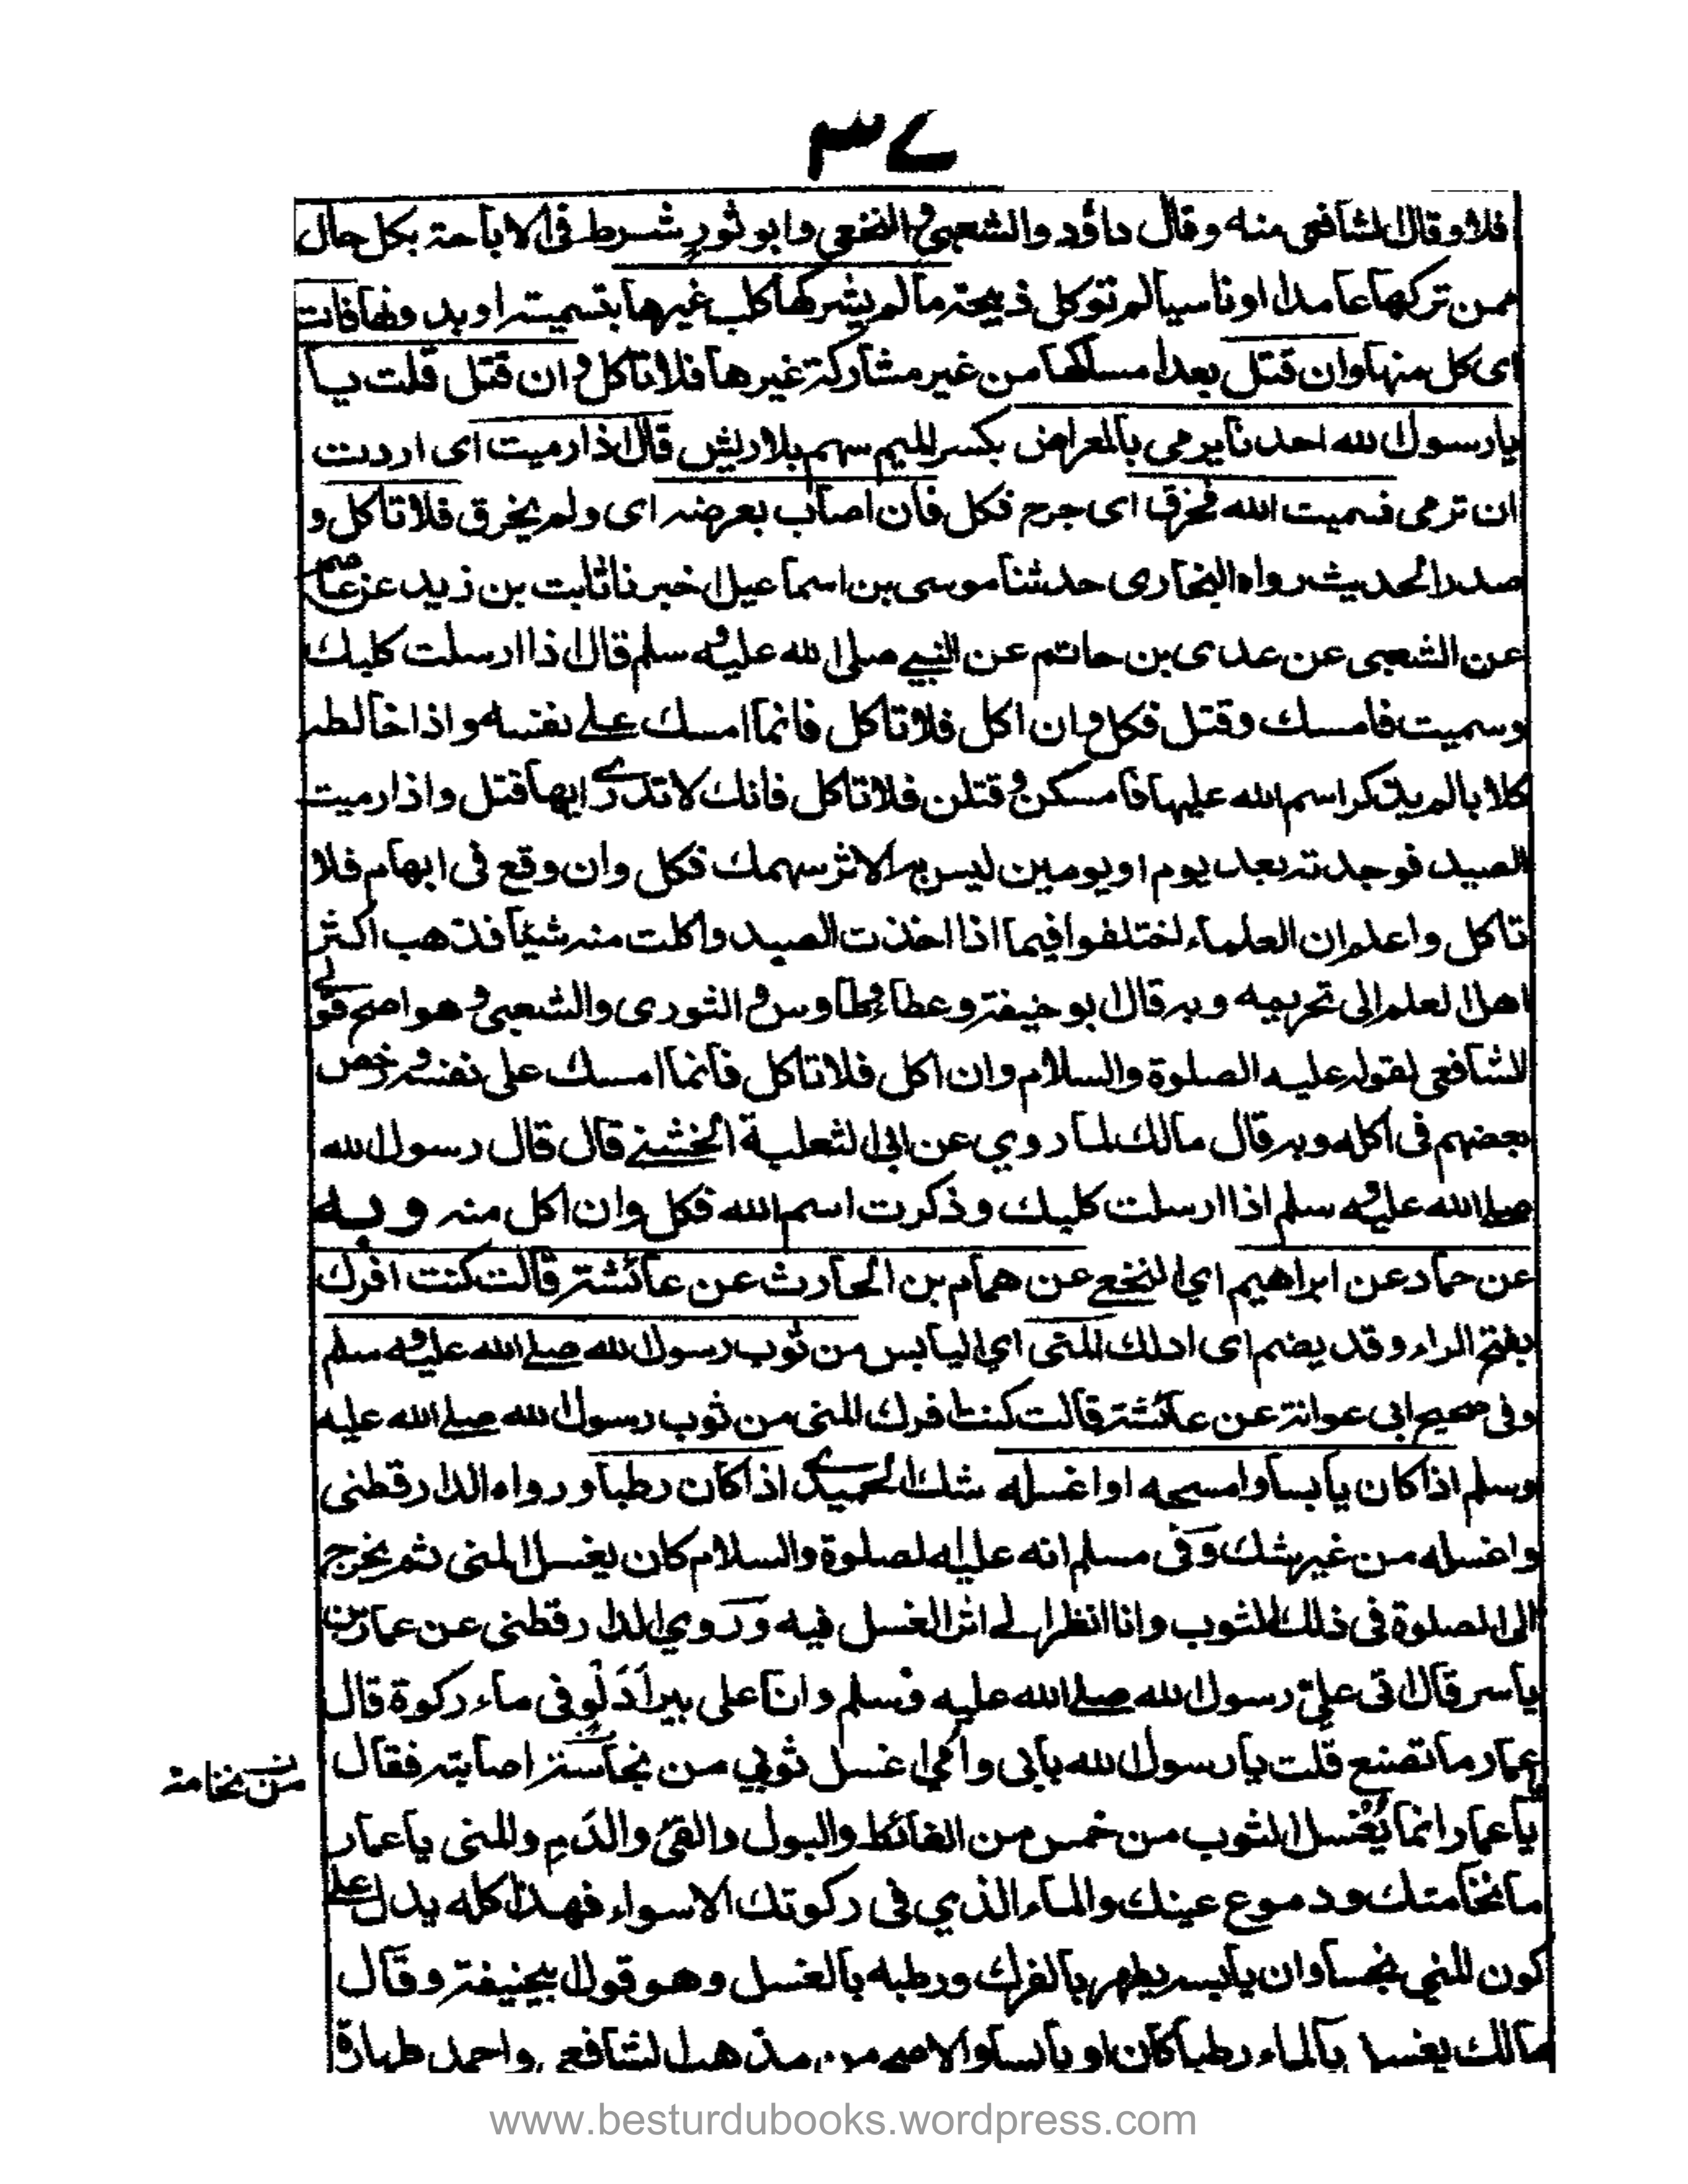 ٣٧
فلا وقال الشافعي منه وقال داؤد والشعبي والنخعي وابو ثور شرط في الاباحة بكل حال
فمن تركها عامدا او ناسيا لم توكل ذبيحته ما لم يشركها كلب غيرها بتسميته او بدونها فات
اى كل منها وان قتل بعد امساكها من غير مشاركة غيرها فلا تاكل وان قتل قلت يا
يا رسول الله احدنا يرمى بالمعراض بكسر الميم سهم بلا ريش قال اذا رميت اى اردت
ان ترمى فسميت الله فخزق اى جرح فكل فان اصاب بعرضه اى ولم يخرق فلا تاكل و
صدر الحديث رواه البخارى حدثنا موسى بن اسماعيل اخبرنا ثابت بن زيد عن عاصم
عن الشعبى عن عدى بن حاتم عن النبي صلى الله عليه وسلم قال اذا ارسلت كلبك
وسميت فامسك وقتل فكل وان اكل فلا تاكل فانما امسك على نفسه واذا خالط
كلابا لم يذكر اسم الله عليها فامسكن وقتلن فلا تاكل فانك لا تدرى ايها قتل واذا رميت
الصيد فوجدته بعد يوم او يومين ليس به الا اثر سهمك فكل وان وقع فى ابهام فلا
تاكل واعلم ان العلماء اختلفوا فيما اذا اخذت الصيد واكلت منه شيئا فذهب اكثر
اهل العلم الى تحريمه وبه قال ابو حنيفة وعطاء وطاوس والثورى والشعبى وهو اصح قولى
الشافعى لقوله عليه الصلوة والسلام وان اكل فلا تاكل فانما امسك على نفسه ورخص
بعضهم فى اكله وبه قال مالك لما روي عن ابى لثعلبة الخشنى قال قال رسول الله
صلى الله عليه وسلم اذا ارسلت كلبك وذكرت اسم الله فكل وان اكل منه وبه
عن حماد عن ابراهيم اي النخعى عن همام بن الحارث عن عائشة قالت كنت افرك
بفتح الراء وقد يضم اى ادلك المنى اي اليابس من ثوب رسول الله صلى الله عليه وسلم
وفى صحيح ابى عوانة عن عائشة قالت كنت افرك المنى من ثوب رسول الله صلى الله عليه
وسلم اذا كان يابسا وامسحه او اغسله شك الحميدى اذا كان رطبا ورواه الدارقطنى
واغسله من غير شك وفى مسلم انه عليه الصلوة والسلام كان يغسل المنى ثم يخرج
الى الصلوة فى ذلك الثوب وانا انظر الى اثر الغسل فيه وروي الدارقطنى عن عمار بن
ياسر قال اتى علىّ رسول الله صلى الله عليه وسلم وانا على بير اَدلُو فى ماء ركوة قال
عمار ما تصنع قلت يا رسول الله بابى وامى اغسل ثوبي من نجاسة اصابته فقال
من نخامة
يا عمار انما يُغسل الثوب من خمس من الغائط والبول والقئ والدم والمنى يا عمار
ما نخامتك ودموع عينك والماء الذي فى ركوتك الا سواء فهذا كله يدل على
كون المني نجسا وان يابسه يطهر بالفرك ورطبه بالغسل وهو قول ابيحنيفة وقال
مالك يغسل بالماء رطبا كان او يابسا والاصح من مذهب الشافعى واحمد طهارة
www.besturdubooks.wordpress.com